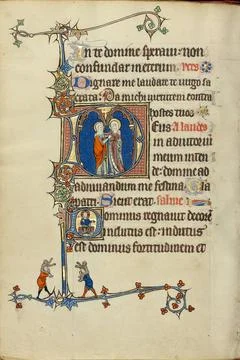 In te domine speravi: non
confundar in eternum. Vers
Dignare me laudare te virgo sa
crata: Da michi virtutem contra
hostes tuos.
Eus A laudes
in adiutoriu
meum inten
de: domine ad
adiuvandum me festina. Glia
patri. Sicut erat.
Dominus regnavit decore
indutus est: indutus
est dominus fortitudinem et